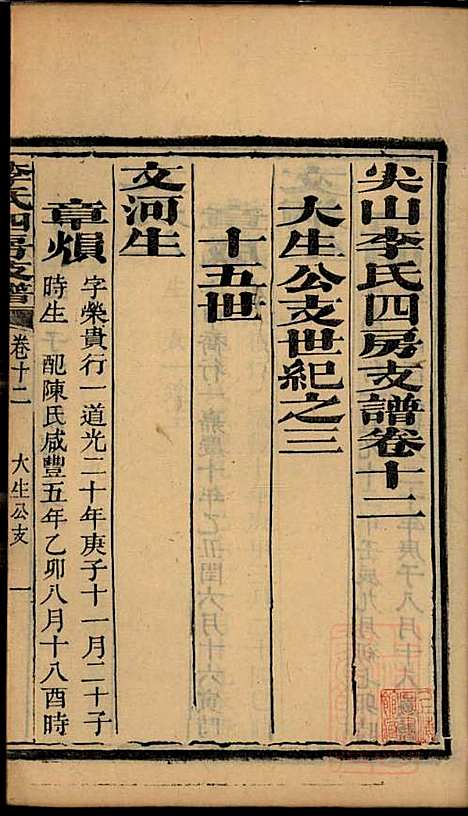 尖山李氏四房支譜卷十二
大生公支世紀之三
十五世
文河生
章熉
字榮貴行一道光二十年庚子十一月二十子
時生 配陳氏咸豐五年乙卯八月十八酉時
李氏四房支譜
卷十二
大生公支
一